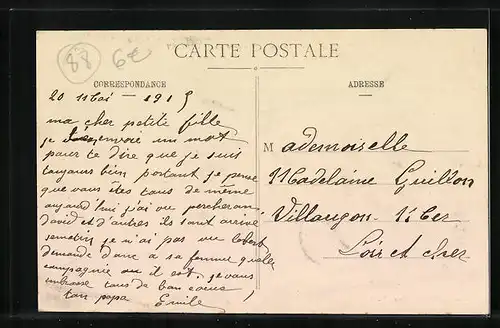 88
6€
CARTE POSTALE
CORRESPONDANCE
ADRESSE
20 Mai 1915
ma cher petite fille
je t'envoie un mot
pour te dire que je suis
toujours bien portant je pense
que vous êtes tous de même
aujourd'hui j'ai vu percheron
david et d'autres ils sont arrivé
se matin je n'ai pas vu
demande donc a sa femme quelle
compagnie ou il est. je vous
embrasse tous de bon coeur
ton papa Emile
Mademoiselle
Madelaine Guillon
Villaugon Mer
Loir et cher